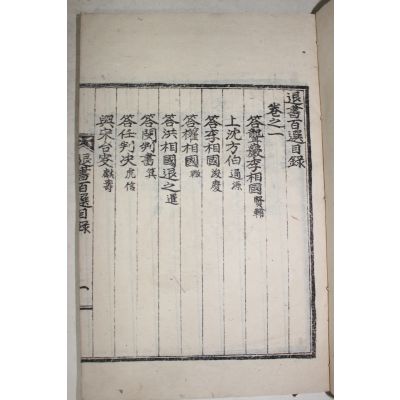 退書百選目錄
卷之一
答聾巖李相國賢輔
上沈方伯通源
答李相國浚慶
答權相國轍
答洪相國退之暹
答閔判書箕
答任判决虎臣
與宋台叟麒壽
退書百選目錄 一